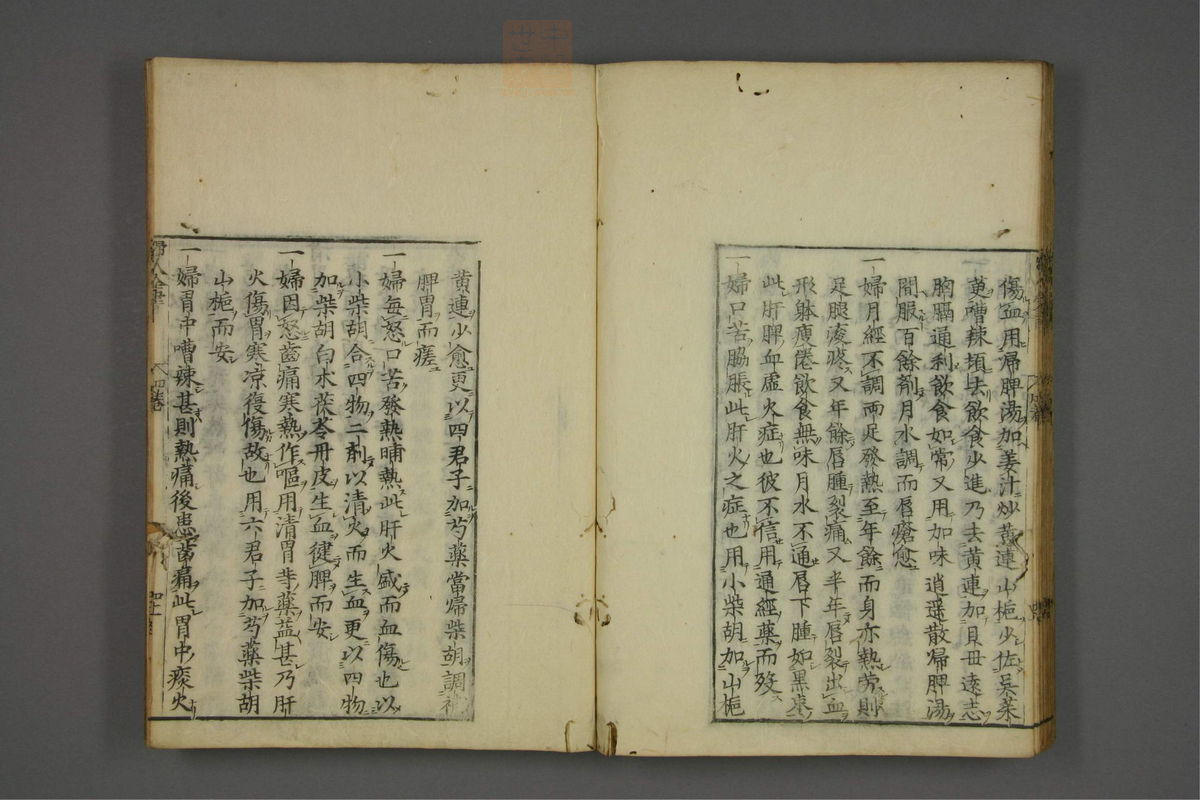 傷血用歸脾湯加姜汁炒黃連山梔少佐吳茱
萸嘈辣頓去飲食少進乃去黃連加貝母遠志
胸膈通利飲食如常又用加味逍遥散歸脾湯
間服百餘剤月水調而唇瘡愈
一婦月經不調兩足發熱至年餘而身亦熱勞則
足腿痠疼又年餘唇腫裂痛又半年唇裂出血
形躰瘦倦飲食無味月水不通唇下腫如黒棗
此肝脾血虚火症也彼不信用通經藥而歿
一婦口苦脇脹此肝火之症也用小柴胡加山梔
黄連少愈更以四君子加芍藥當歸柴胡調補
脾胃而瘥
一婦每怒口苦發熱晡熱此肝火盛而血傷也以
小柴胡合四物二剤以清火而生血更以四物
加柴胡白朮茯苓丹皮生血健脾而安
一婦因怒齒痛寒熱作嘔用清胃寺藥益甚乃肝
火傷胃寒凉復傷故也用六君子加芍藥柴胡
山梔而安
一婦胃中嘈辣甚則熱痛後患齒痛此胃中痰火